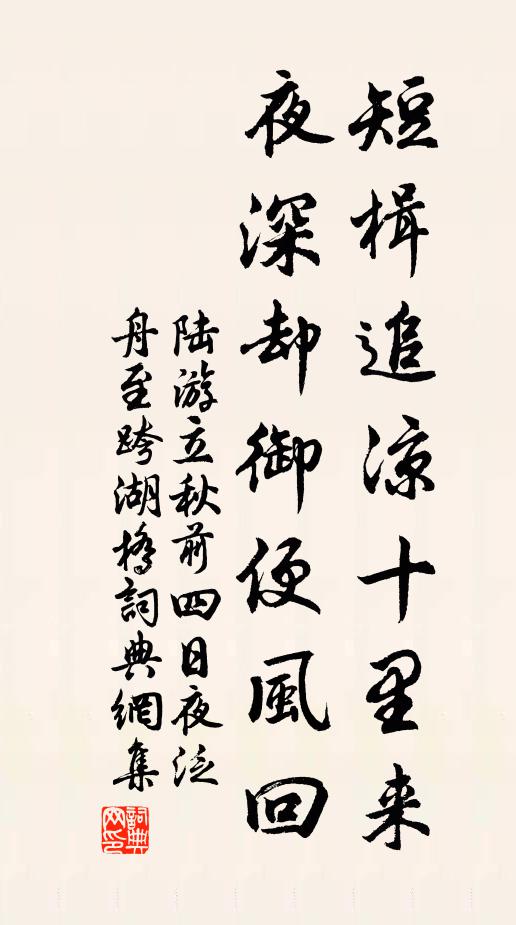 短楫追凉十里来
夜深却御便風回
陆游立秋前四日夜泛
舟至跨湖橋詞典網集
詞典
网印